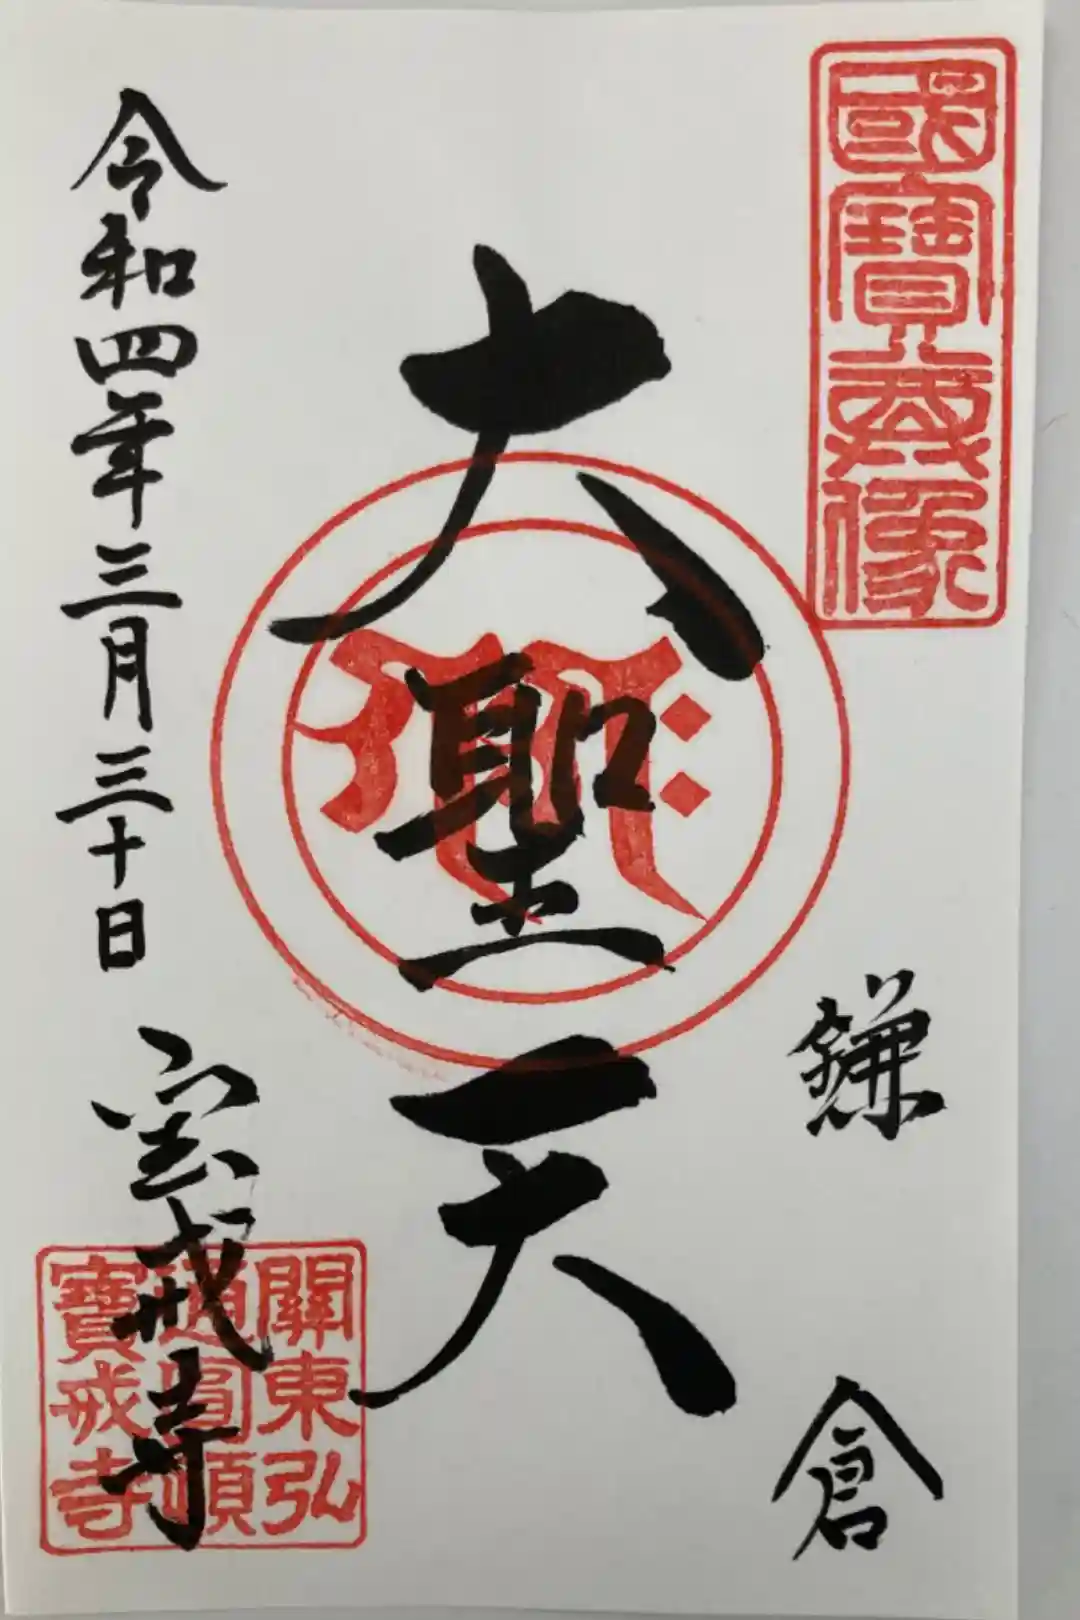 國寶尊像
鎌倉
大聖天
令和四年三月三十日
宝戒寺
關東弘
通圓頓
寶戒寺